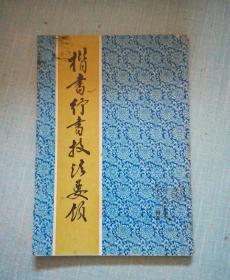 楷书行书技法要领